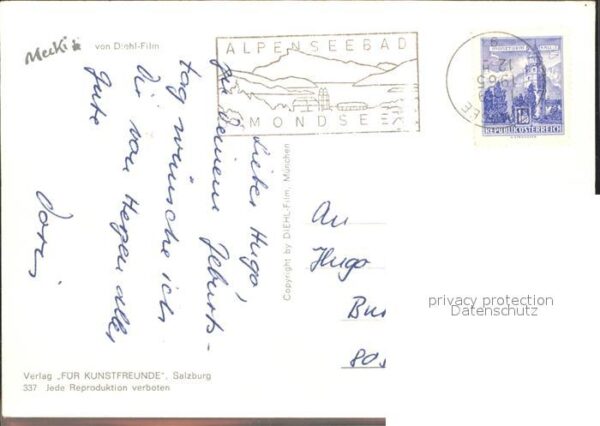 Mecki
von Diehl-Film
ALPENSEEBAD
MONDSEE
REPUBLIK ÖSTERREICH
Lieber Hugo,
zu Deinem Geburts-
tag wünsche ich
Dir von Herzen alles
Gute
Doris
Copyright by DIEHL-Film, München
An
Hugo
80
privacy protection
Datenschutz
Verlag „FÜR KUNSTFREUNDE“, Salzburg
337 Jede Reproduktion verboten